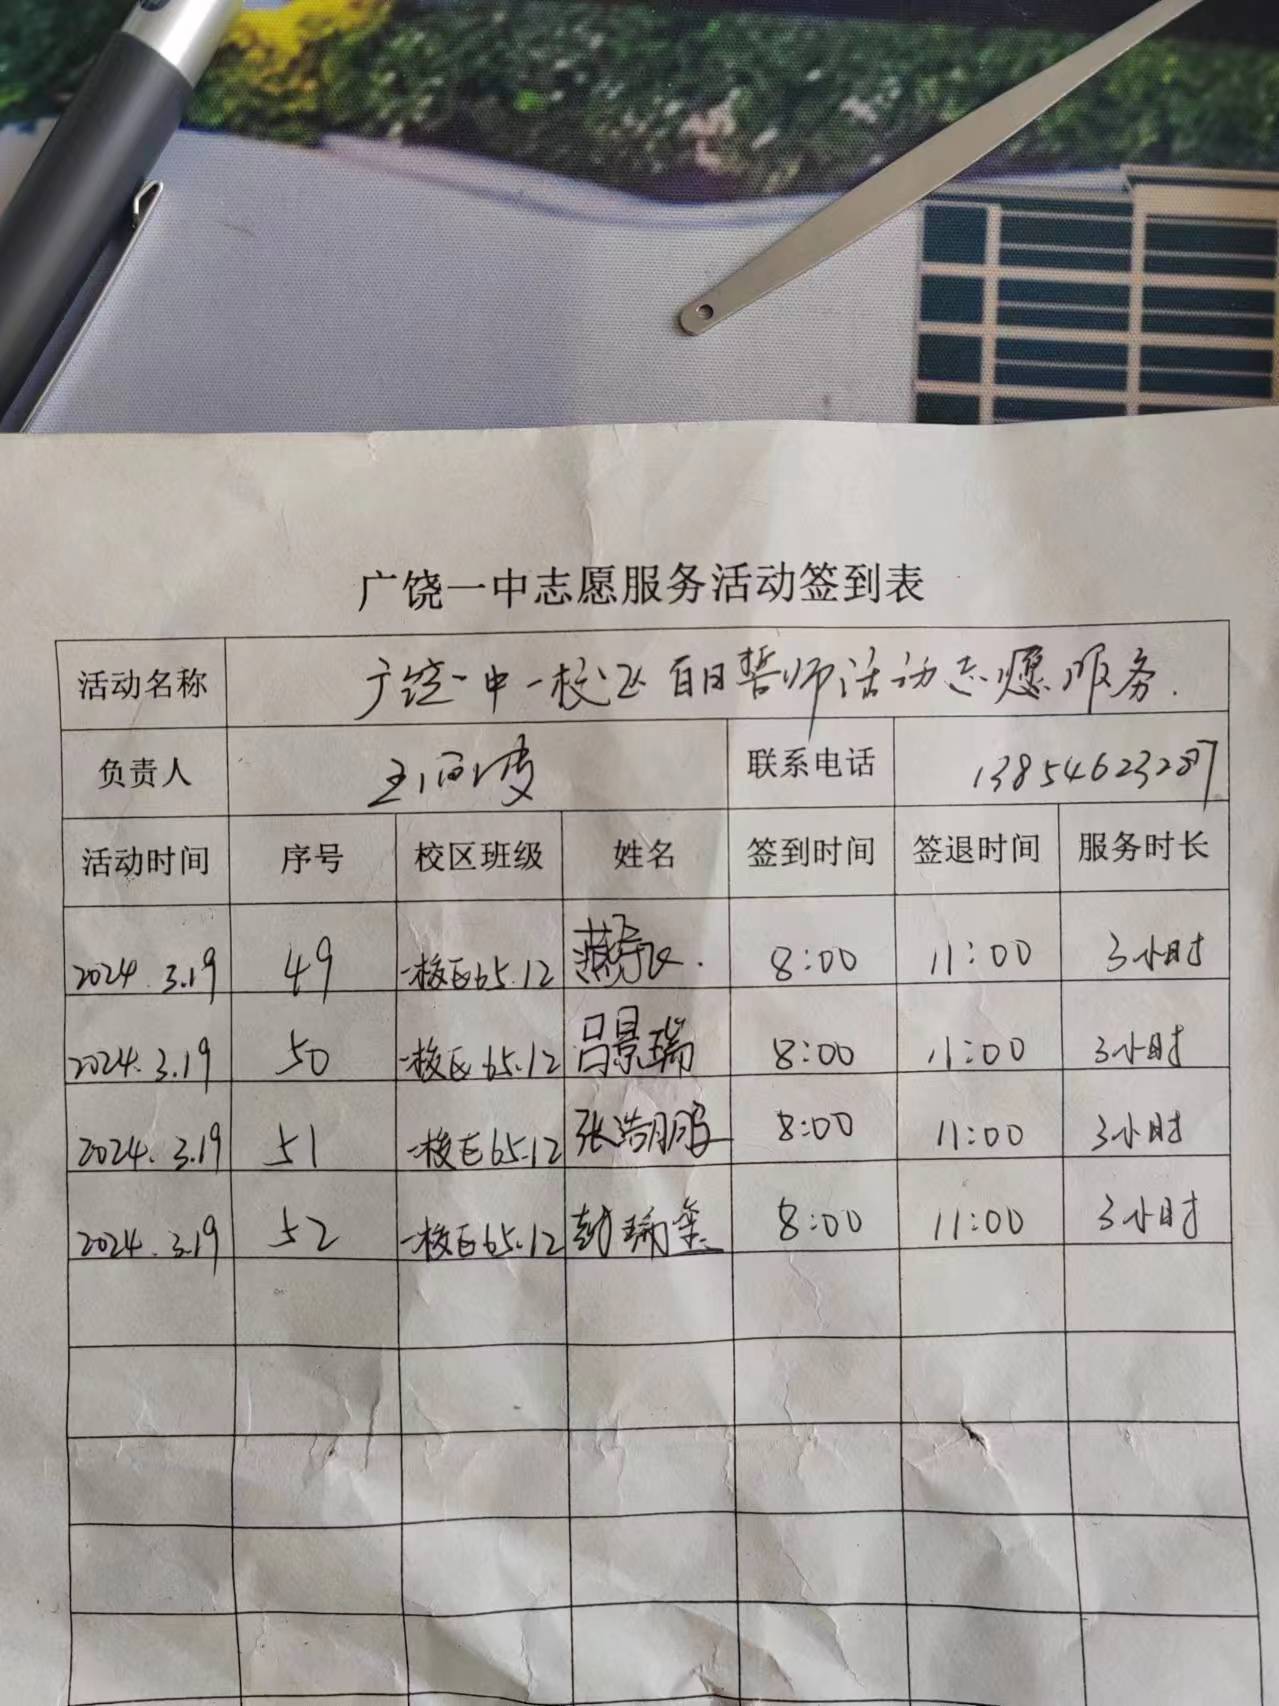 广饶一中志愿服务活动签到表
活动名称 广饶一中一校区百日誓师活动志愿服务.
负责人 王 联系电话 13854623287
活动时间 序号 校区班级 姓名 签到时间 签退时间 服务时长
2024.3.19 49 一校区65.12 8:00 11:00 3小时
2024.3.19 50 一校区65.12 吕景瑞 8:00 11:00 3小时
2024.3.19 51 一校区65.12 张浩鹏 8:00 11:00 3小时
2024.3.19 52 一校区65.12 8:00 11:00 3小时